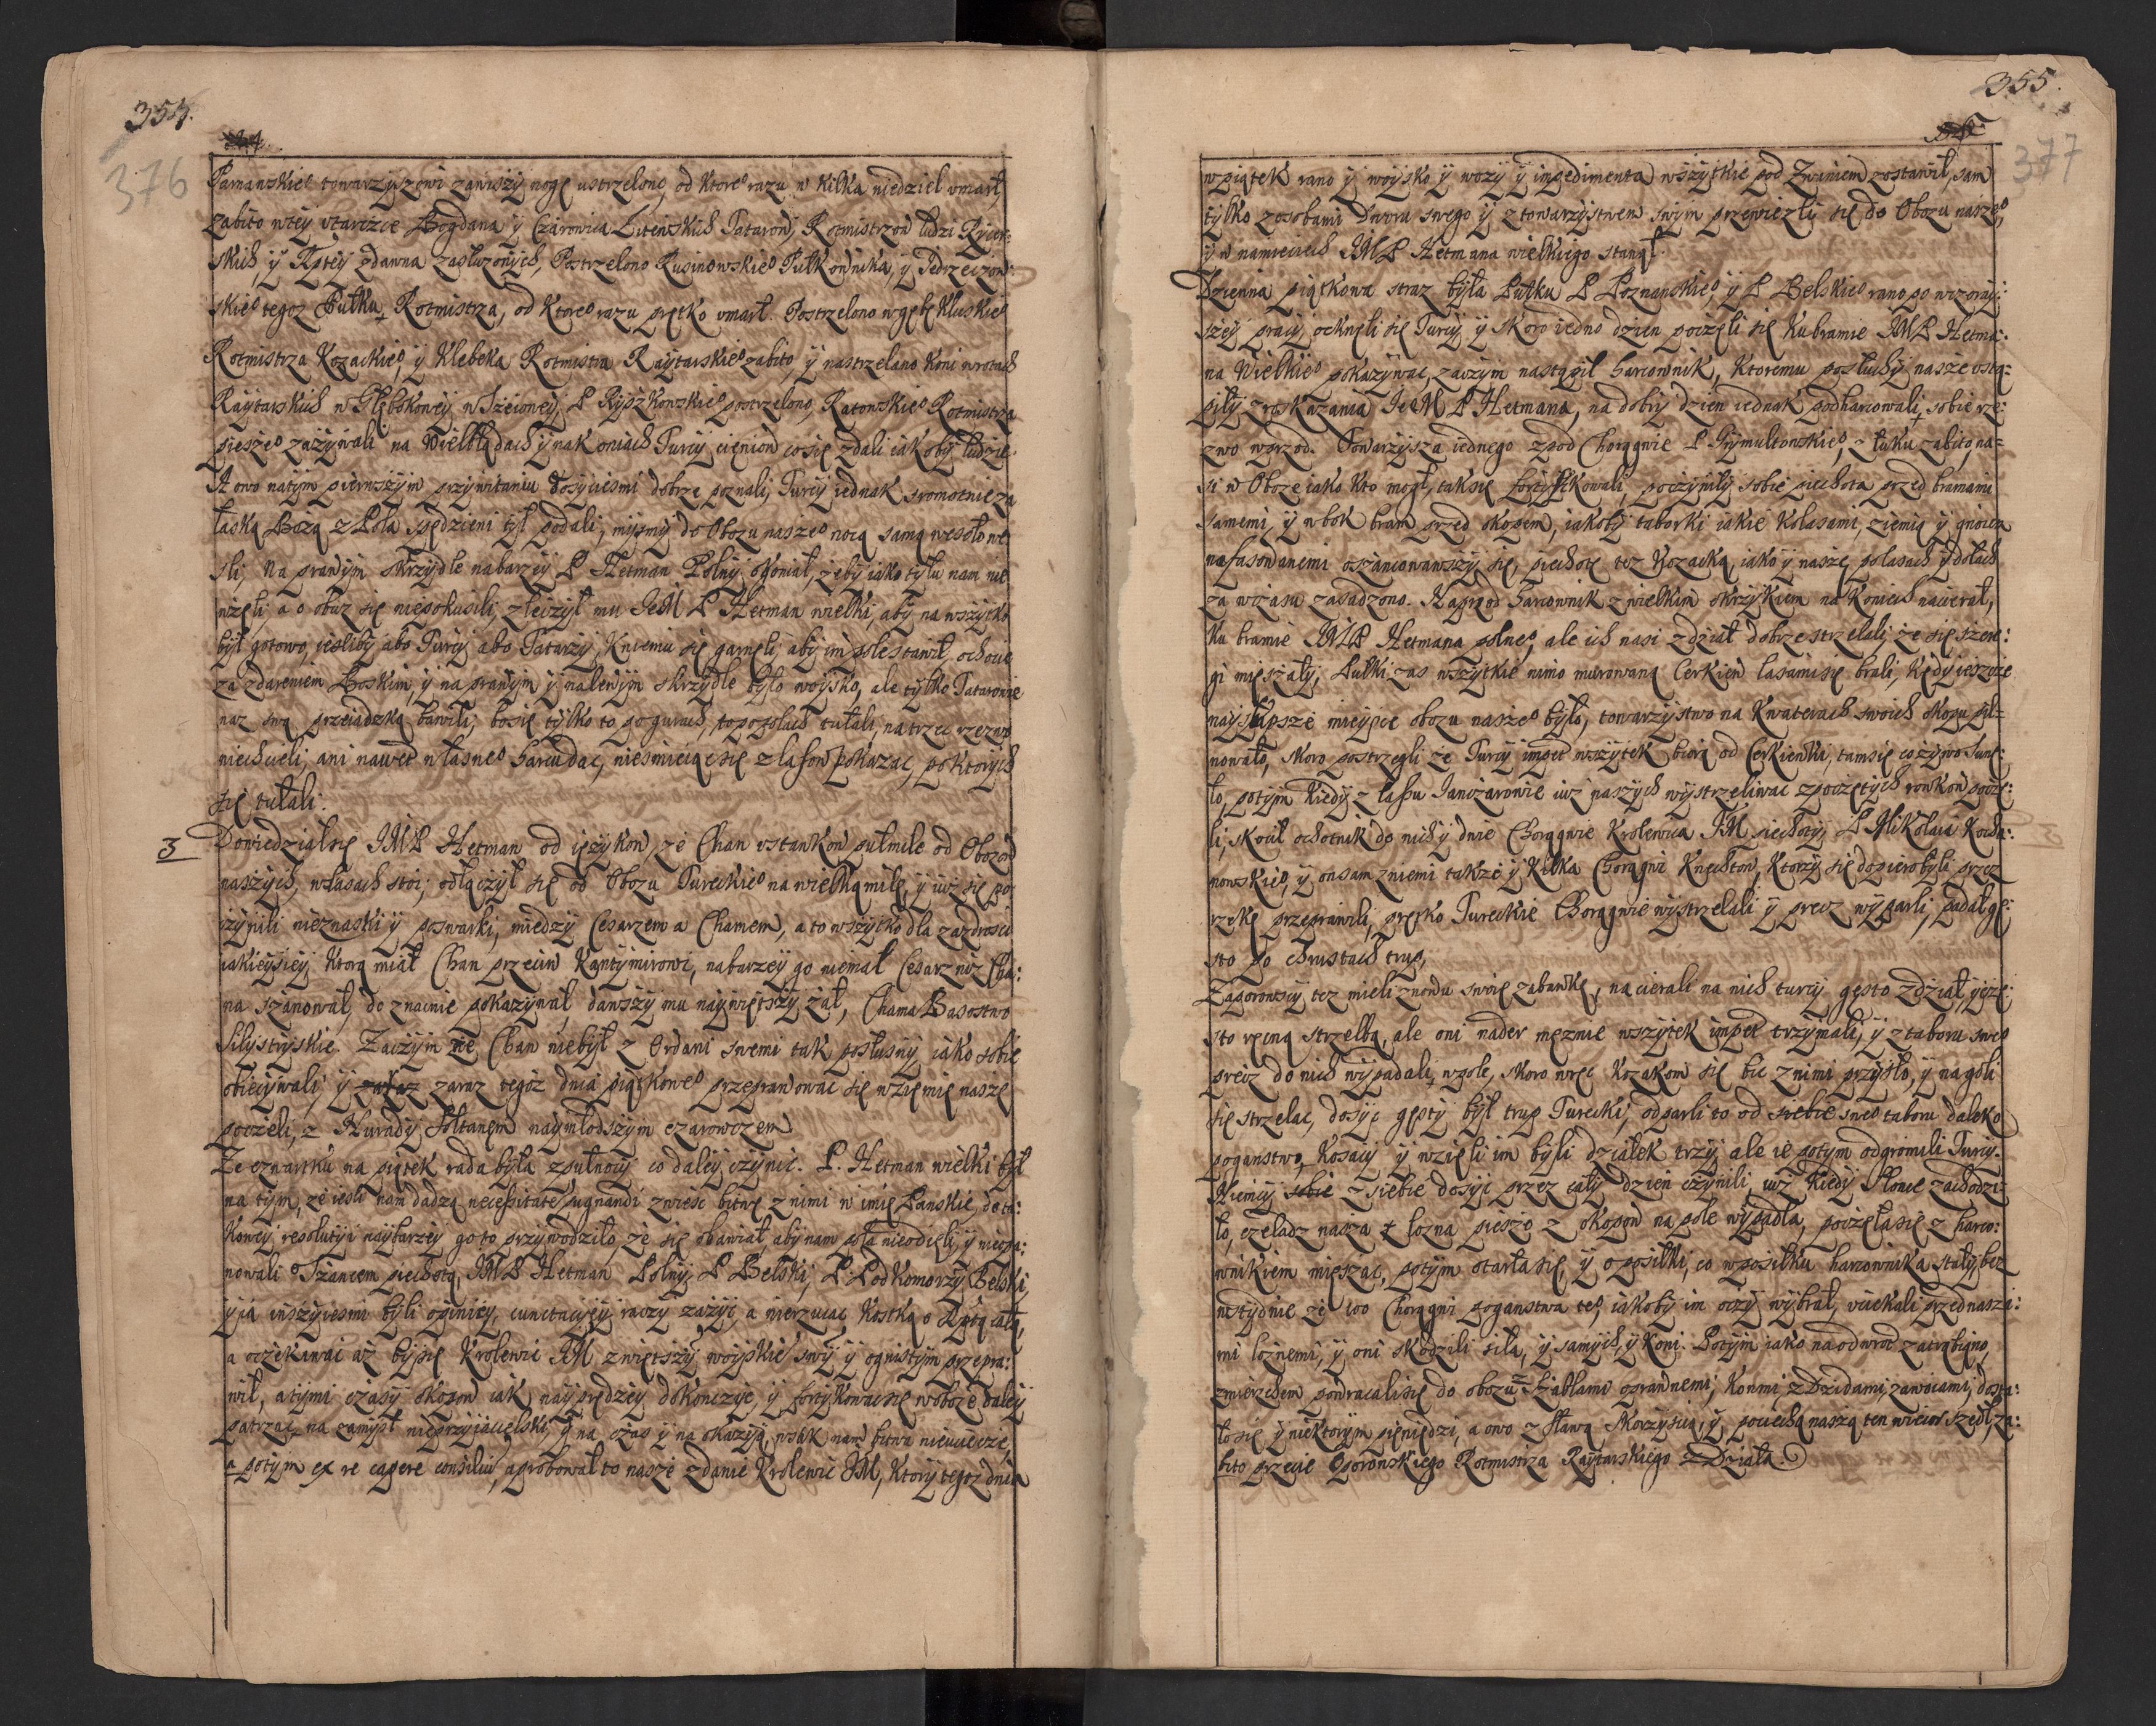 354.
376
Parnawskieo towarzyszowi zawiszy nogę ustrzelono, od ktoreo razu w kilka niedziel vmarł,
zabito wtey vtarczce Bogdana y Czarowica Litewskich Tatarow, Rotmistrzow ludzi Rycer:
skich, y Rptey zdawna zasłuzonych, Postrzelono Rusinowskieo Pułkownika, y Jedrzeiow:
skieo tegoz Pułku, Rotmistrza, od ktoreo razu prętko vmarł. Postrzelono w gębę Kluskieo
Rotmistrza Kozackieo, y Klebeka Rotmistra Raytarskieo zabito, y nastrzelano koni w rotach
Raytarskich w Głębokowey, w Szeiowey, P Ryszkowskieo postrzelono, Ratowskieo Rotmistrza
pieszeo zazywali na Wielbłądach y na koniach Turcy cieniow co się zdali iakoby ludzie.
A owo na tym pierwszym przywitaniu dosyciesmi dobrze poznali, Turcy iednak sromotnie za
łaską Bozą z Pola spędzieni tył podali, mysmy do Obozu naszeo nocą samą wesoło we
sli, Na prawym skrzydle nabarzey P Hetman Polny okoniał, zeby iako tyłu nam nie
wzęli, a o oboz się niepokusili, zleczył mu JeM P Hetman wielki, aby na wszytko
był gotowo, iesliby abo Turcy abo Tatarzy, kniemu się garnęli, aby im pole stawił, ochoczo
za zdarzeniem Boskim, y na prawym y na lewym skrzydle było woysko, ale tylko Tatarowie
nas swą przeiadzką bawili, bo się tylko to po gurach, to po polach tułali, natrzec rzezwo
niechcieli, ani nawet własneo harcu dac, niesmieiąc się z lasow pokazac, po ktorych
się tułali.
3 Dowiedział się JMP Hetman od ięzykow, ze Chan vstankow pułmile od Obozow
naszych, wlasach stoi, odłączył się od Obozu Tureckieo na wielką milę, y iuz się po
czynili nieznaski y poswarki, miedzy Cesarzem a Chamem, a to wszytko dla zazdrosci
iakieysiey, ktorą miał Chan przeciw Kantymirowi, nabarzey go niemał Cesarz niz Cha:
na szanował, do znacnie pokazywał, dawszy mu naywiętszy zał, Chama Basostwo
Silystryskie. Zaczym ze Chan niebył z Ordani swemi tak posłusny iako sobie
obiecywali, y zaraz zaraz tegoz dnia piątkoweo przeprawowac się wziemię naszę
poczeli, z Nurady Sołtanem naymłodszym czarowczem
Ze czwartku na piątek rada była zpułnocy co daley czynic. P. Hetman wielki był
na tym, ze iesli nam dadzą necessitatē pugnandi zwiesc bitwę z nimi w imię Panskie, do ta:
kowey resolutyi naybarzey go to przywodziło, ze się obawiał, aby nam pola nieodięli, y nieopa:
nowali Szancem piechotą, JMP Hetman Polny, P Belski, P. Podkomorzy Belski,
y ia inszyiesmi byli opiniey, cunctacyiey raczy zazyc a nierzucac kostką o Rptą całą,
a oczekawac az by się Krolewic JM z więtszy woyskie swy y ognistym przepra:
wił, a tymi czasy okopow iak nayprędzey dokonczyc, y fortykowac się w oboze daley
patrzac, na zamysł nieprzyiacielski, y na czas y na okazyą, wszak nam bitwa nieuciecze,
a potym ex re capere consiliū, aprobował to nasze zdanie Krolewic JM, ktory tegoz dnia
355.
377
w piątek rano y woysko y wozy y impedimenta wszytkie pod Zwaniem zostawił, sam
tylko z osobami Dworu swego y z towarzystwem swym przewiezli się do Obozu naszeo,
y w namieciech JMP Hetmana wielkiego stanął.
Dzienna piątkowa straz była Pułku P Poznanskieo, y P Belskieo rano po wczoray:
szey pracy ocknęli się Turcy, y skoro iedno dzien poczęli się ku bramie JMP Hetma:
na Wielkieo pokazywac, zaczym nastąpił harcownik, ktoremu posłuchy nasze vstą:
piły z roskazania JeM P Hetmana, na dobry dzien iednak podharcowali, sobie rze:
zwo wprzod. Towarzysza iednego zpod Chorągwie P Grymultowskieo, z łuku zabito, na=
si w Oboze iako kto mogł, tak się fortyfikowali, poczyniły sobie piechota przed bramami
samemi, y w bok bram przed okopem, iakoby taborki iakie kolasami, ziemią y gnoiem
nafasowanemi oszancowawszy się, piechotę tez Kozacką, iako y naszę, po lasach y dołach
za wczasu zasadzono. Naprzod harcownik z wielkim okrzykiem na koniech nacierał,
ku bramie JMP Hetmana polneo, ale ich nasi z dział dobrze strzelali, ze się szere:
gi mięszały, Pułki zas wszytkie mimo murowaną Cerkiew lasami się brali, kędy ieszcze
nayslepsze mieysce obozu naszeo było, towarzystwo na Kwaterach swoich okopu pil=
nowało, skoro postrzegli ze Turcy impet wszytek biorą od Cerkiewki, tam się co zywo sunę:
ło, potym kiedy z lassu Janczarowie iuz naszych wystrzeliwac zpoczętych rowkow poczę:
li, skoczł ochotnik do nich y dwie Chorągwie Krolewica JM piechoty, P Mikołaia Kocha:
nowskieo, y on sam z niemi takze y kilka Chorągwi Knechtow, ktorzy się dopiero byli przez
rzekę przeprawili, prętko Tureckie Chorągwie wystrzelali y precz wyparli, padał gę:
sto po chrustach trup,
Zaporowscy tez mieli znowu swoię zabawkę, nacierali na nich turcy gęsto z dział, y czę:
sto ręcną strzelbą, ale oni nader męznie wszytek impet trzymali, y z taboru sweo
precz do nich wypadali, w pole, skoro wręc Kozakom się bic z nimi przysło, y nagoli
się strzelac, dosyc gęsty był trup Turecki, odparli to od siebie sweo taboru daleko
poganstwo, Kosacy y wzięli im byli działek trzy, ale ie potym odgromili Turcy.
Niemcy sobie z siebie dosyc przez cały dzien czynili, iuz kiedy Słonce zachodzi:
ło, czeladz nasza z lozna piesze z okopow na pole wypadła, poczęła się z harco:
wnikiem mięszac, potym otarła się, y o posiłki, co w posiłku harcownika stały, bez
wstydnie ze 100 Chorągwi poganstwa teo, iakoby im oczy wybrał, vciekali przed naszai:
mi loznemi, y oni skodzili siła, y samych, y koni. Potym iako na odwrot zatrąbiono
zmierzchem powracali się do obozu, z Szablami oprawnemi, konmi, z Dzidami, zawoiami, dosta:
ło się y niektorym pieniędzi, a owo z sławą skorzyscią, y pociechą naszą ten wieczor szedł, za:
bito przecie Oporowskiego Rotmistrza Raytarskiego z Działa